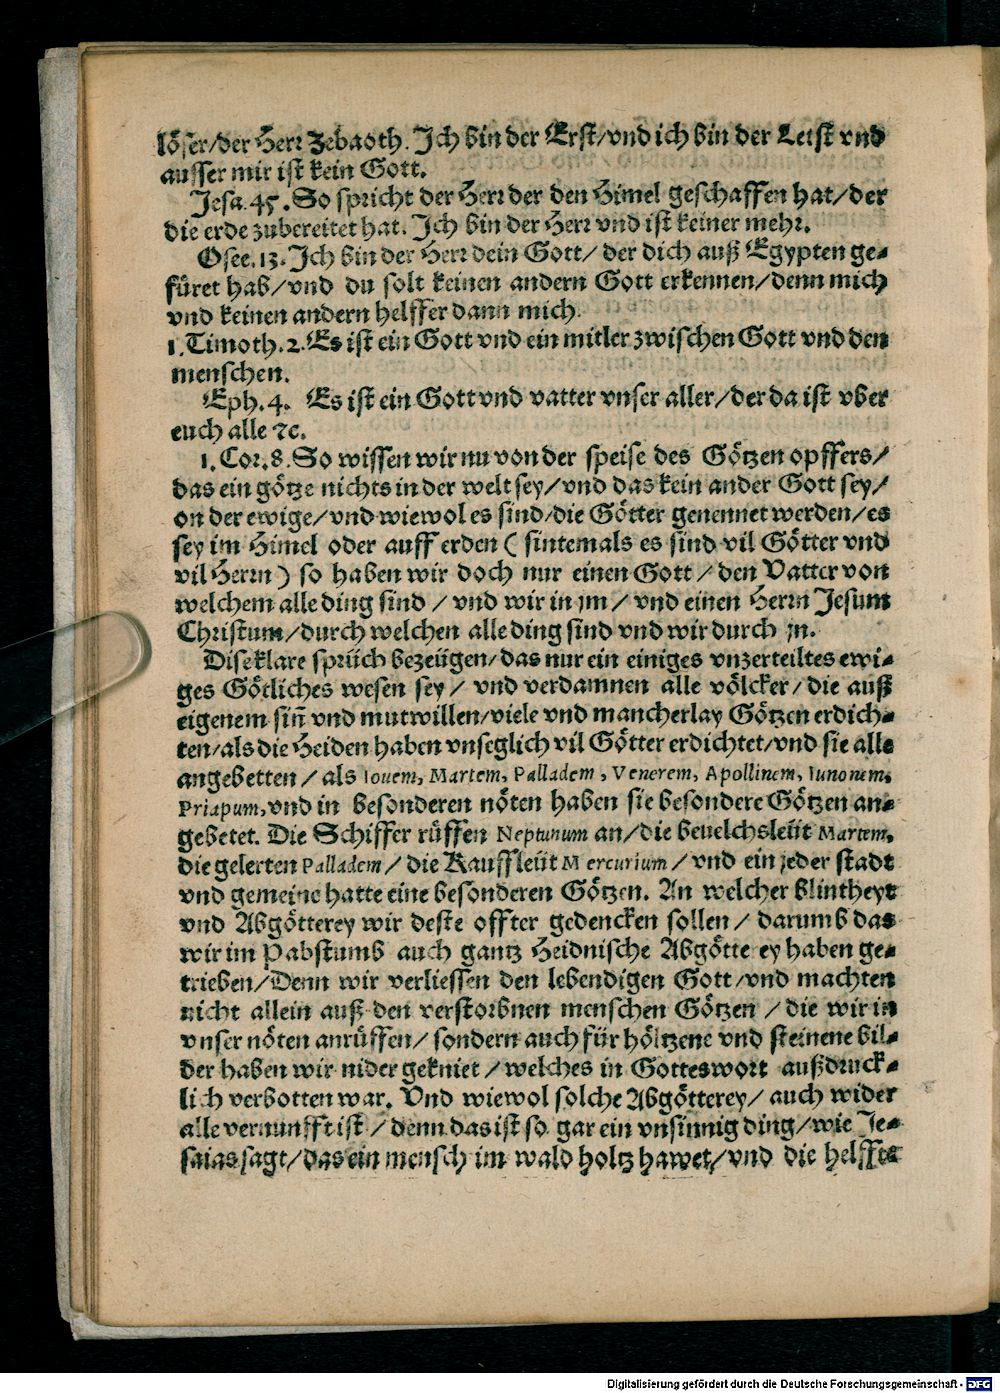 löser/der Herr Zebaoth. Ich bin der Erst/vnd ich bin der Letst vnd
ausser mir ist kein Gott.
Jesa.45. So spricht der Herr der den Himel geschaffen hat/der
die erde zubereitet hat. Ich bin der Herr vnd ist keiner mehr.
Osee.13. Ich bin der Herr dein Gott/ der dich auß Egypten ge-
füret hab/vnd du solt keinen andern Gott erkennen/denn mich
vnd keinen andern helffer dann mich.
1.Timoth.2. Es ist ein Gott vnd ein mitler zwischen Gott vnd den
menschen.
Eph.4. Es ist ein Gott vnd vatter vnser aller/der da ist vber
euch alle ꝛc.
1.Cor.8. So wissen wir nu von der speise des Götzen opffers/
das ein götze nichts in der welt sey/vnd das kein ander Gott sey/
on der ewige/vnd wiewol es sind/die Götter genennet werden/es
sey im Himel oder auff erden ( sintemals es sind vil Götter vnd
vil Herrn ) so haben wir doch nur einen Gott / den Vatter von
welchem alle ding sind / vnd wir in jm / vnd einen Herrn Jesum
Christum/durch welchen alle ding sind vnd wir durch jn.
Dise klare sprüch bezeügen/das nur ein einiges vnzerteiltes ewi-
ges Götliches wesen sey / vnd verdamnen alle völcker/die auß
eigenem sin̄ vnd mutwillen/viele vnd mancherlay Götzen erdich-
ten/als die Heiden haben vnseglich vil Götter erdichtet/vnd sie alle
angebetten / als Iouem, Martem, Palladem, Venerem, Apollinem, Iunonem,
Priapum, vnd in besonderen nöten haben sie besondere Götzen an-
gebetet. Die Schiffer rüffen Neptunum an/die beuelchsleüt Martem,
die gelerten Palladem / die Kauffleüt Mercurium / vnd ein jeder stadt
vnd gemeine hatte eine besonderen Götzen. An welcher blintheyt
vnd Abgötterey wir deste offter gedencken sollen / darumb das
wir im Pabstumb auch gantz Heidnische Abgötte ey haben ge-
trieben/Denn wir verliessen den lebendigen Gott/vnd machten
nicht allein auß den verstorbnen menschen Götzen / die wir in
vnser nöten anrüffen/ sondern auch für höltzene vnd steinene bil-
der haben wir nider gekniet / welches in Gotteswort außdruck-
lich verbotten war. Vnd wiewol solche Abgötterey/ auch wider
alle vernunfft ist / denn das ist so gar ein vnsinnig ding/wie Je-
saias sagt/das ein mensch im wald holtz hawet/vnd die helffte
Digitalisierung gefördert durch die Deutsche Forschungsgemeinschaft - DFG